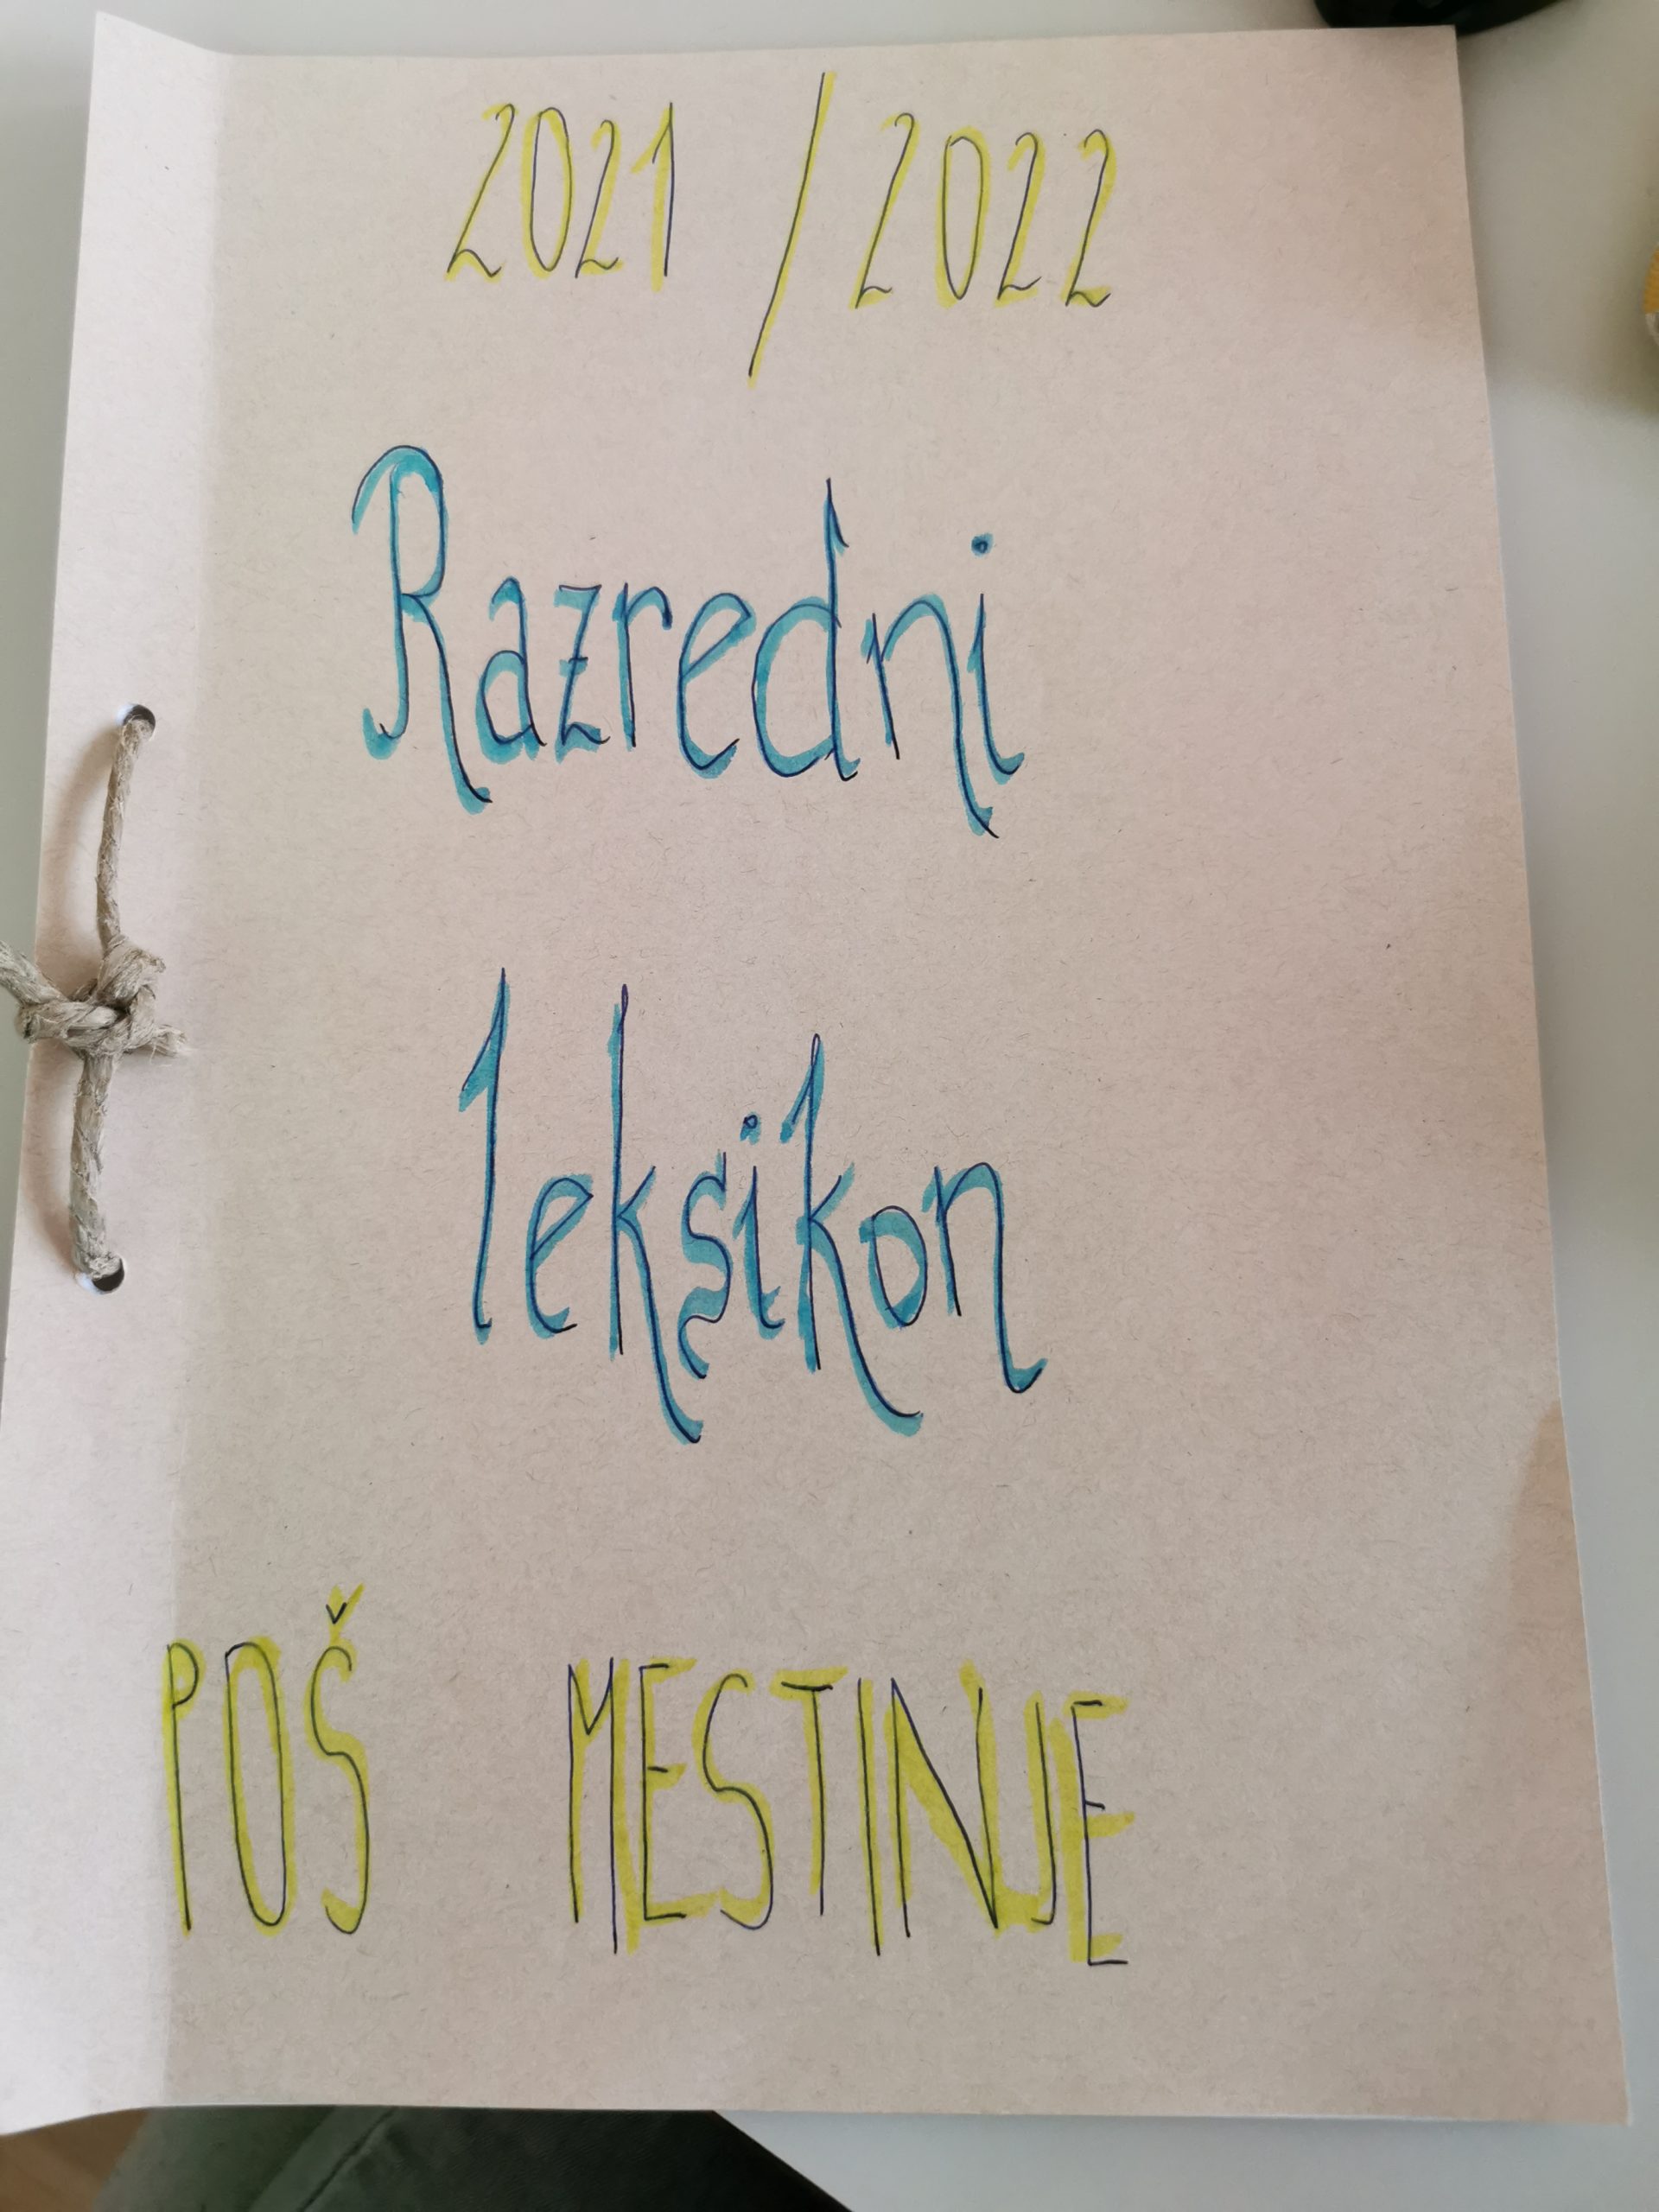 2021 / 2022
Razredni
leksikon
POŠ MESTINJE